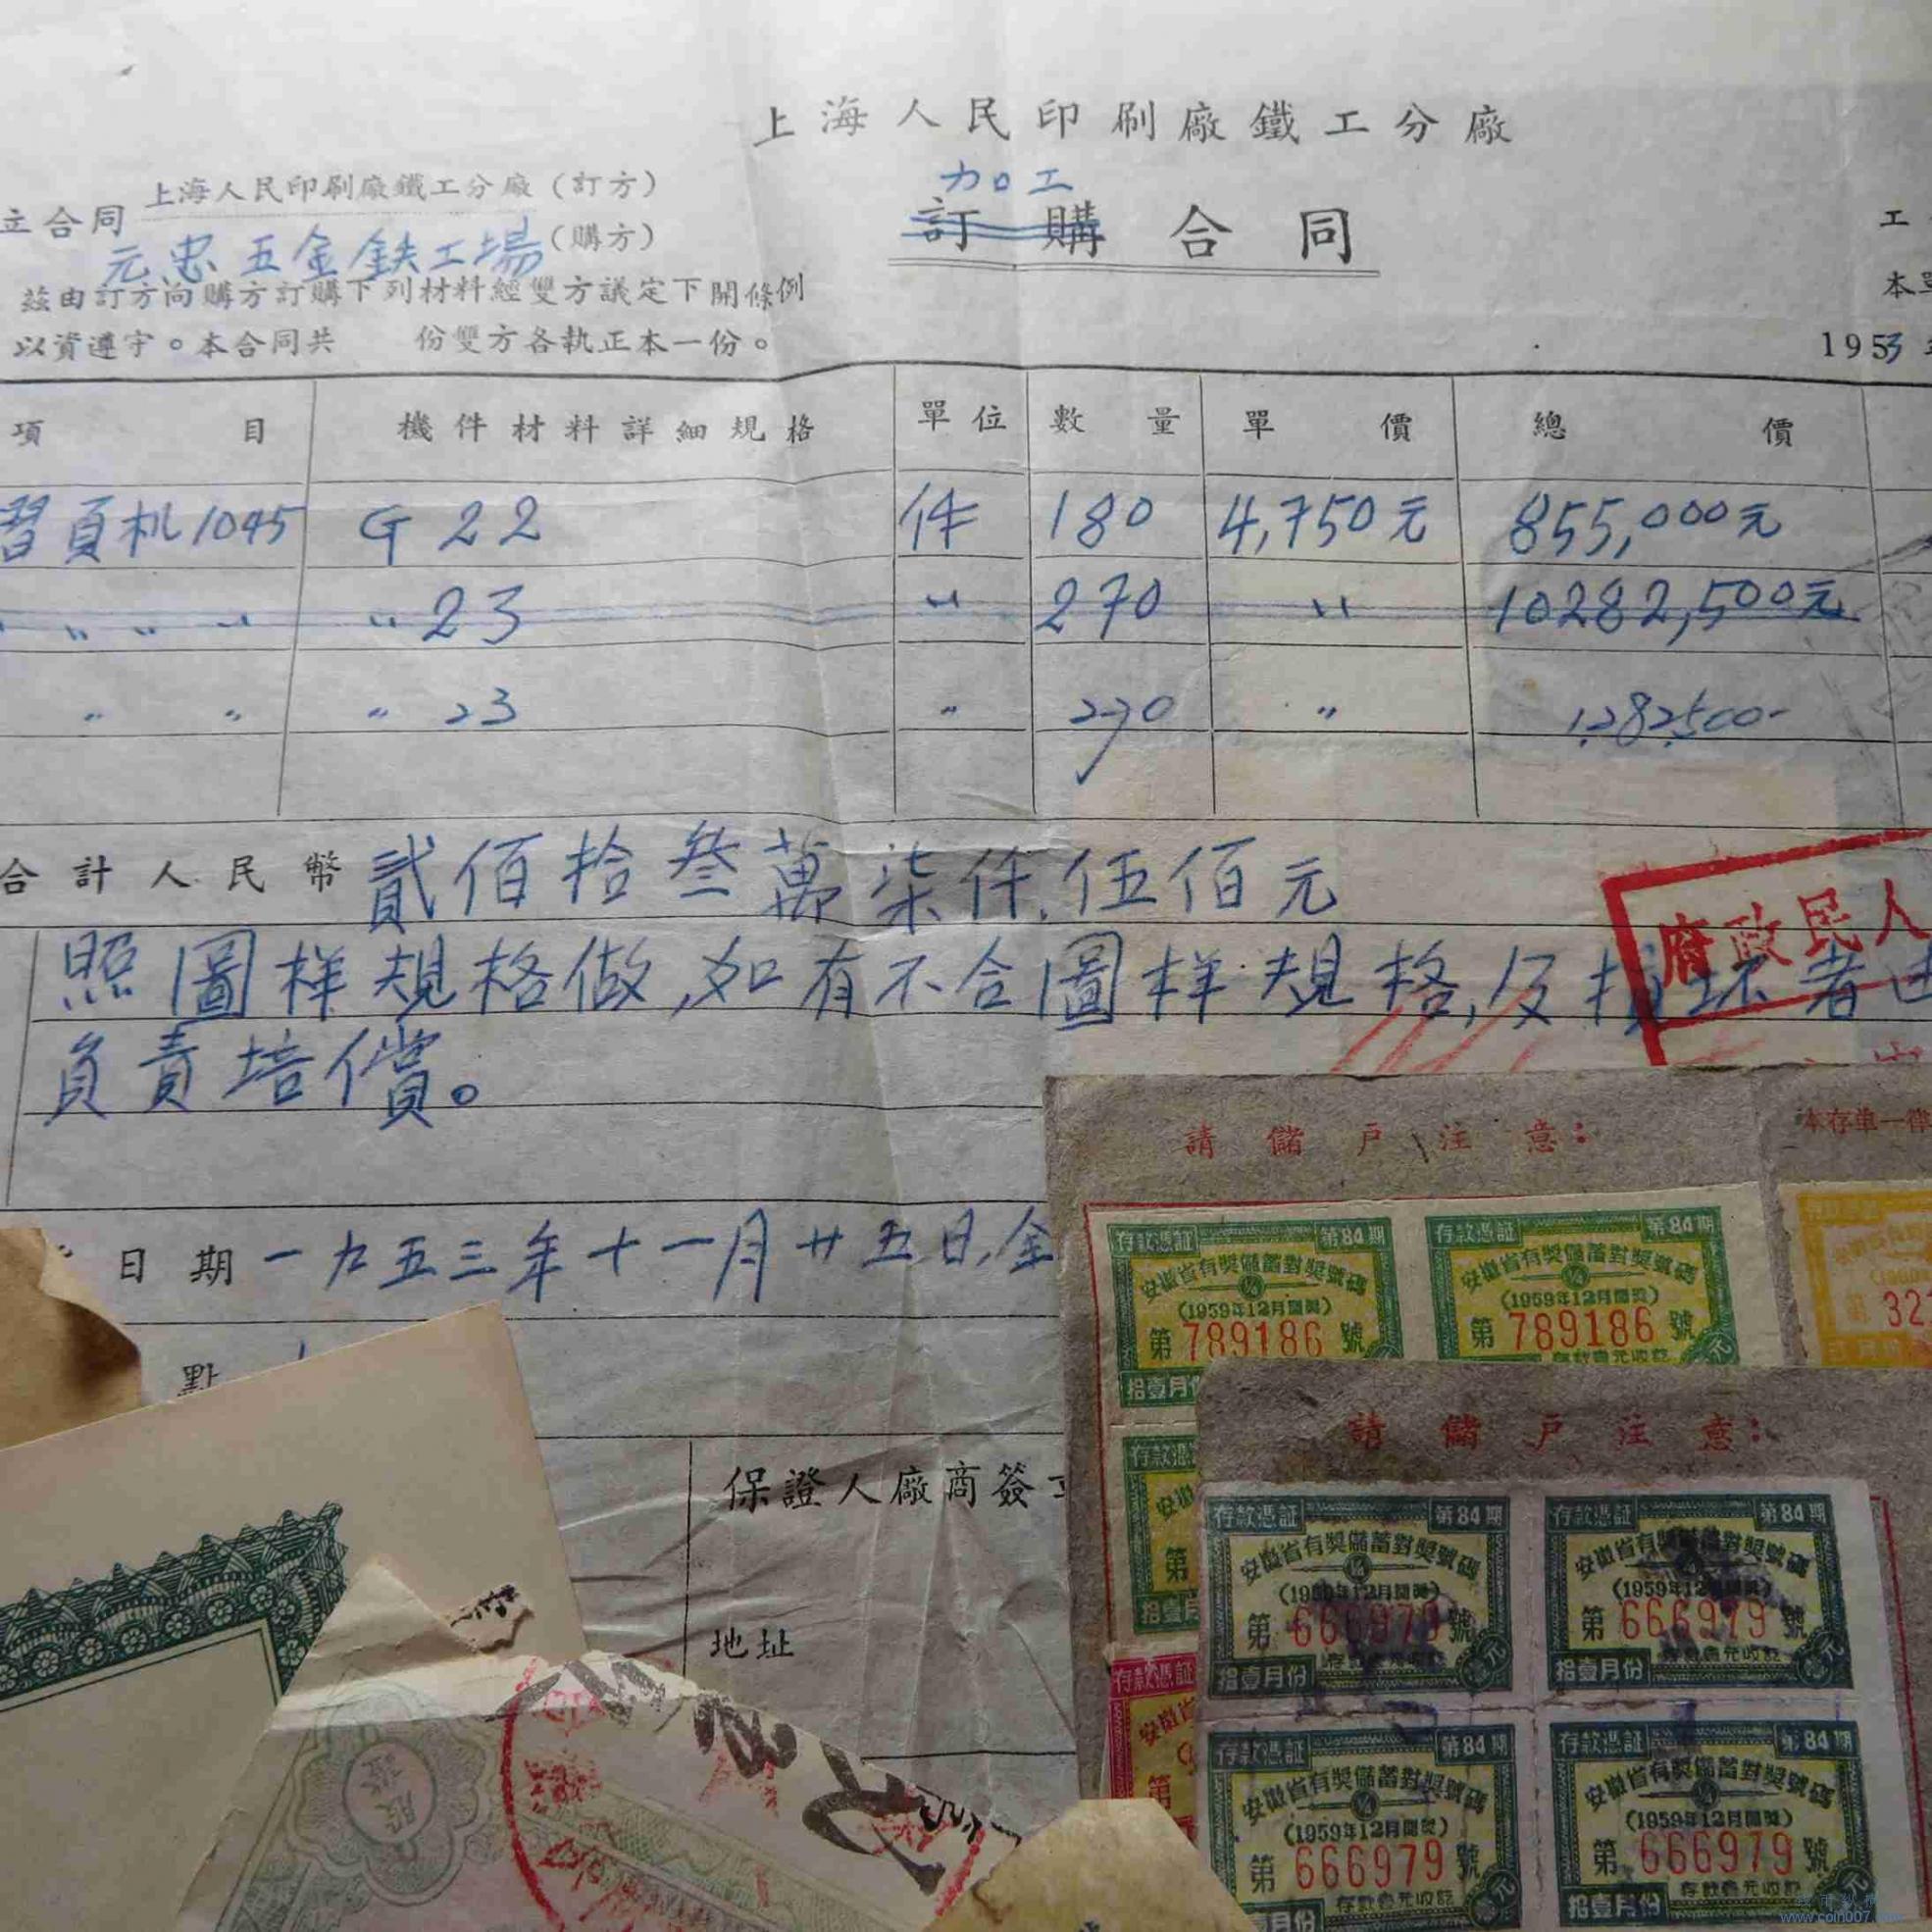 上海人民印刷廠鐵工分廠
加工
訂購合同
立合同 上海人民印刷廠鐵工分廠（訂方）
元忠五金鉄工場（購方）
工
茲由訂方向購方訂購下列材料經雙方議定下開條例
本單
以資遵守。本合同共 份雙方各執正本一份。
1953
項目 機件材料詳細規格 單位 數量 單價 總價
習頁机1045 G 22 件 180 4,750元 855,000元
〃 〃 〃 〃 23 〃 270 〃 10282,500元
〃 〃 〃 23 〃 270 〃 1,282,500-
合計人民幣 貳佰拾叁萬柒仟伍佰元
府政民人
照圖样規格做,如有不合圖样規格,及損坏者由
負責培償。
日期 一九五三年十一月廿五日,全
點
保證人廠商簽
地址
請儲戶注意：
本存单一律
存款憑証 第84期
安徽省有獎儲蓄對獎號碼
1/4
(1959年12月開獎)
第 789186 號
存款壹元收訖
拾壹月份
存款憑証 第84期
安徽省有獎儲蓄對獎號碼
1/4
(1959年12月開獎)
第 789186 號
存款壹元收訖
第 32
存款憑
安徽
第
拾壹月
請儲戶注意：
存款憑証 第84期
安徽省有獎儲蓄對獎號碼
1/4
(1959年12月開獎)
第 666979 號
拾壹月份 存款壹元收訖 壹元
存款憑証 第84期
安徽省有獎儲蓄對獎號碼
(1959年12月開獎)
第 666979 號
拾壹月份 存款壹元收訖 壹元
存款憑証
安徽省
第
存款憑証 第84期
安徽省有獎儲蓄對獎號碼
1/4
(1959年12月開獎)
第 666979 號
拾壹月份 存款壹元收訖 壹元
存款憑証 第84期
安徽省有獎儲蓄對獎號碼
1/4
(1959年12月開獎)
第 666979 號
拾壹月份 存款壹元收訖 壹元
股票
www.coin007.com